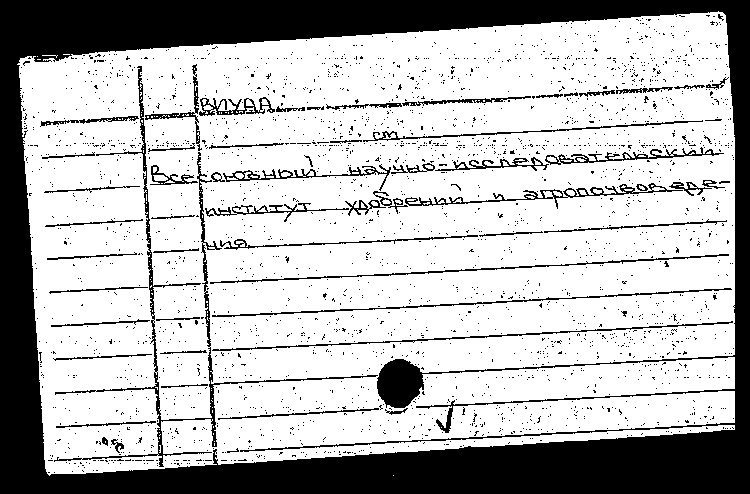 ВИУАА
см
Всесоюзный научно-исследовательский
институт удобрений и агропочвоведе-
ния